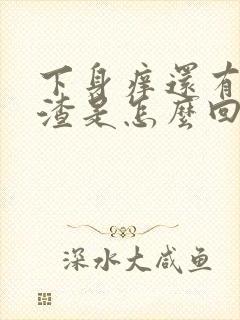 下身痒還有
渣是怎麼回
深水大咸鱼